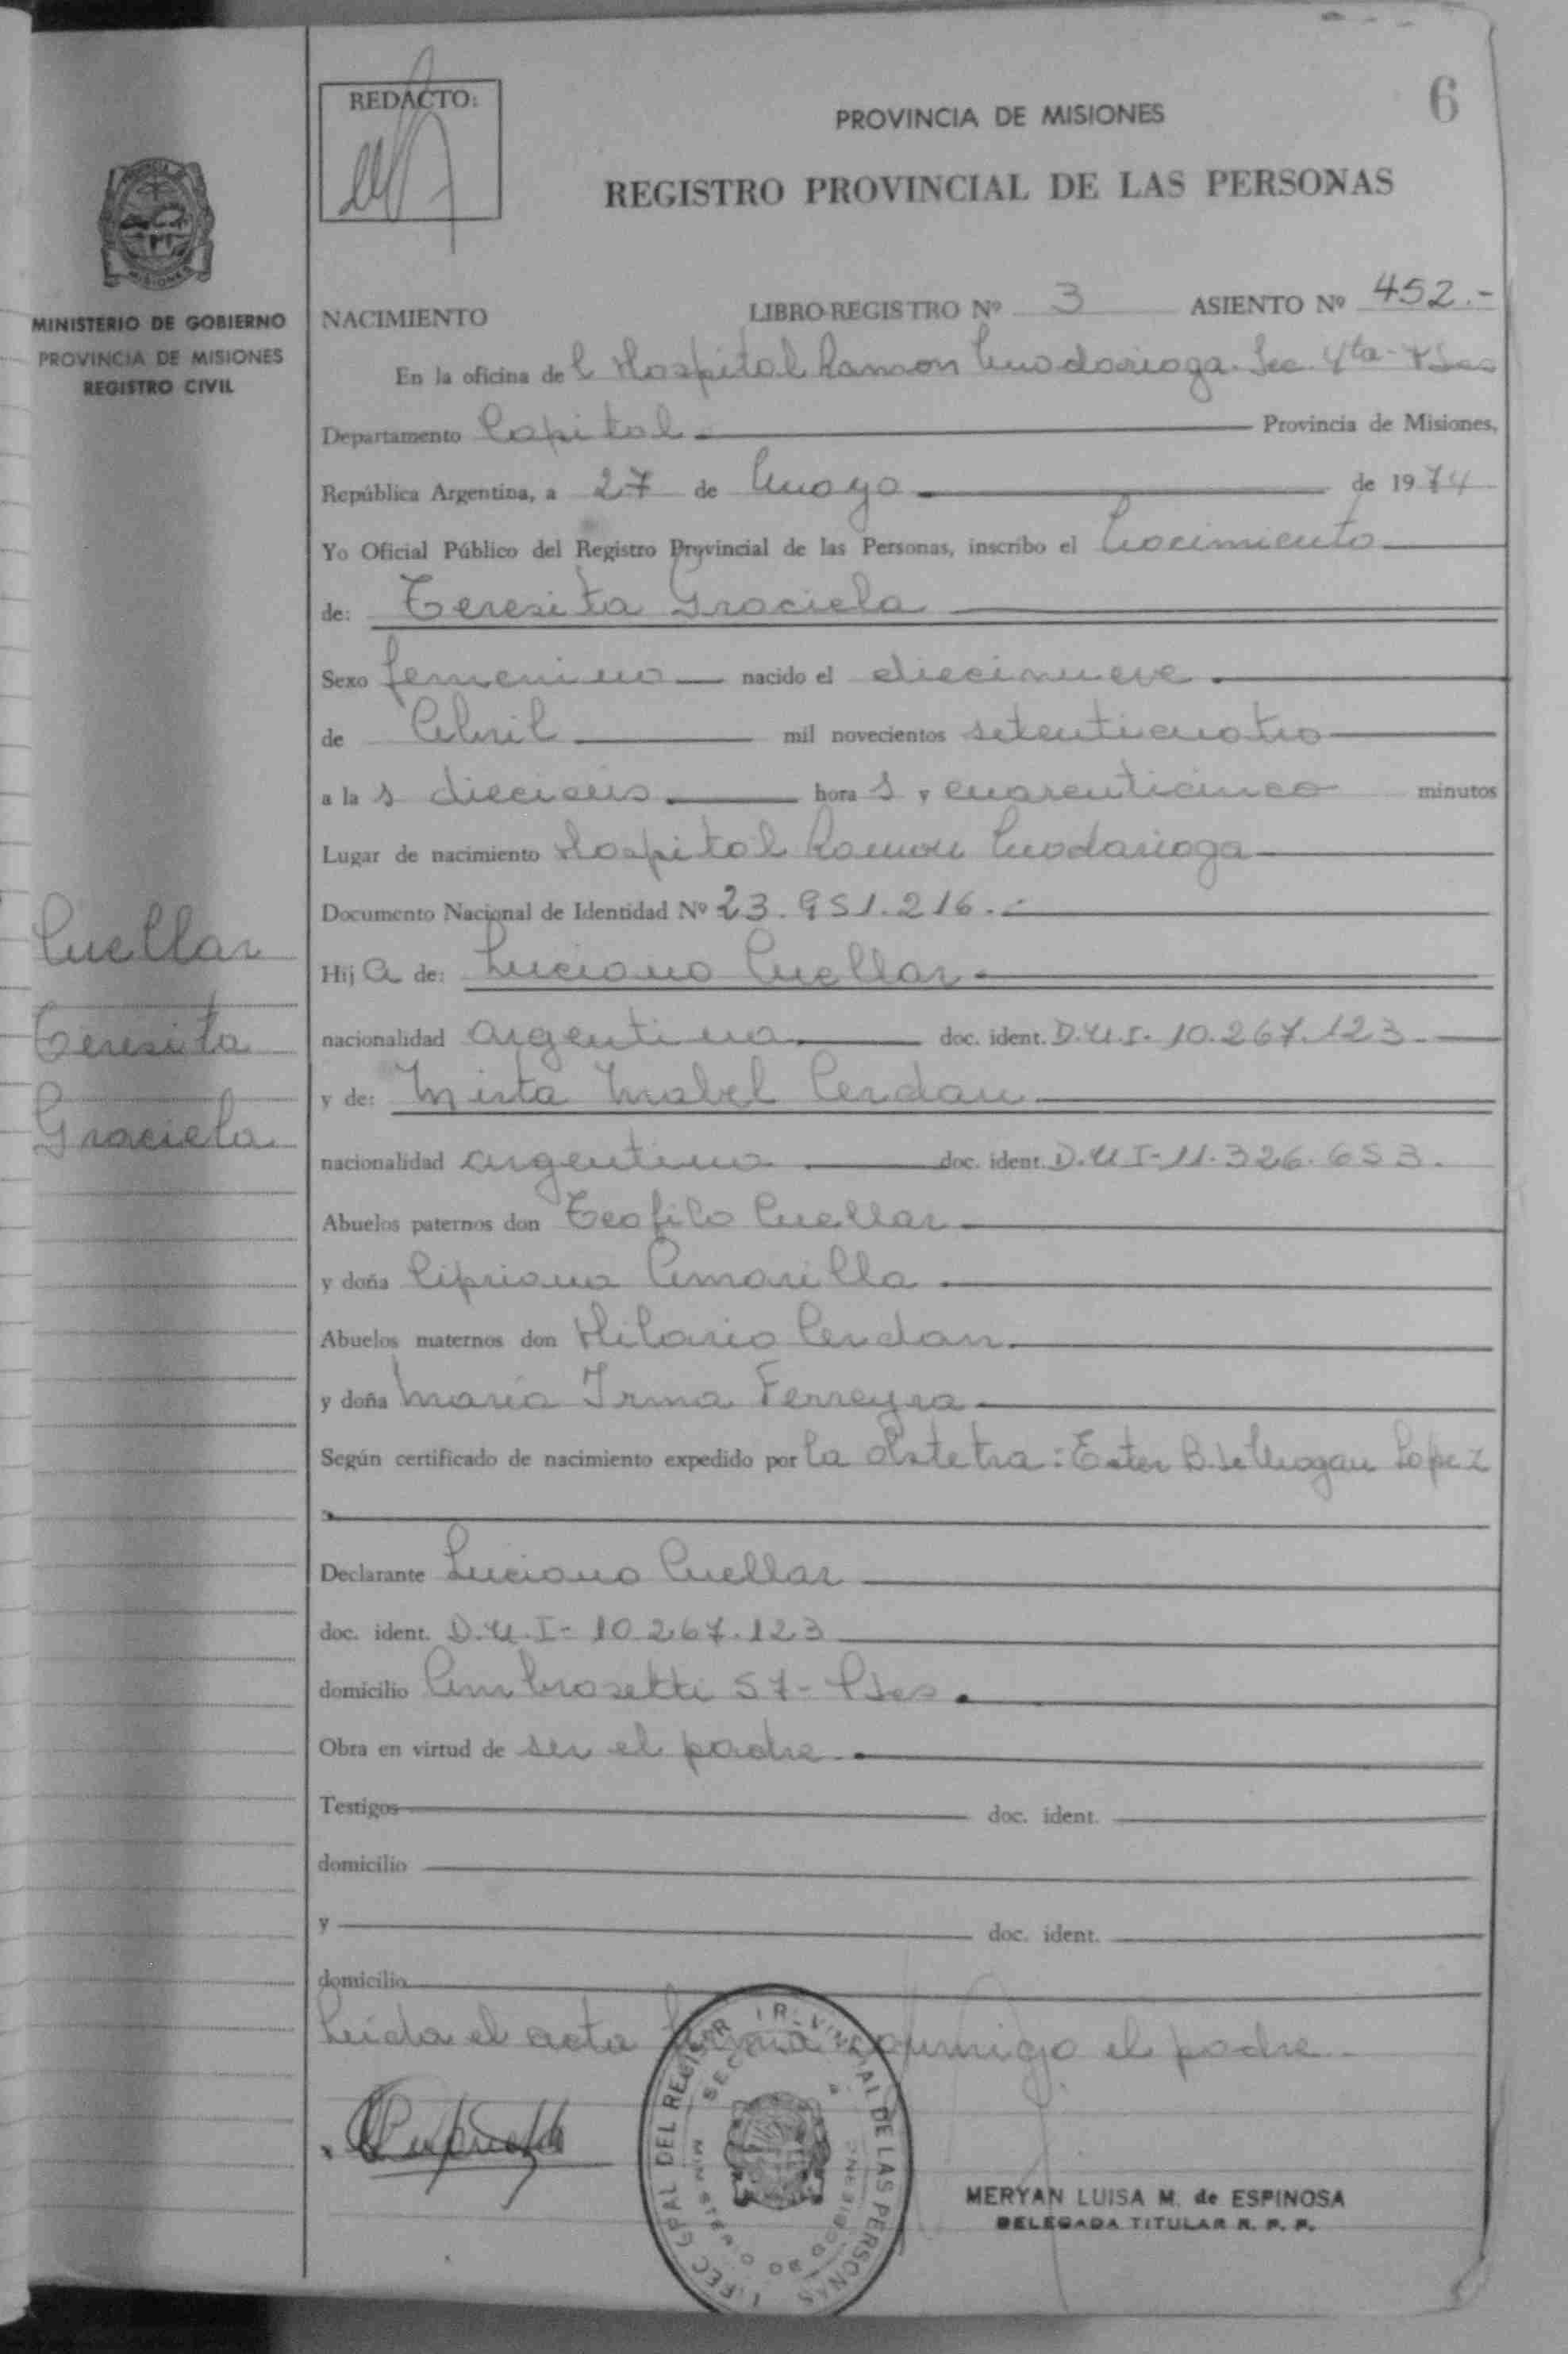 6
REDACTO:
PROVINCIA DE MISIONES
REGISTRO PROVINCIAL DE LAS PERSONAS
MINISTERIO DE GOBIERNO
PROVINCIA DE MISIONES
REGISTRO CIVIL
NACIMIENTO LIBRO-REGISTRO Nº 3 ASIENTO Nº 452.-
En la oficina de l Hospital Ramon Madariaga. Sec. 4ta- Psas
Departamento Capital Provincia de Misiones,
República Argentina, a 27 de Mayo de 1974
Yo Oficial Público del Registro Provincial de las Personas, inscribo el Nacimiento
de: Teresita Graciela
Sexo femenino nacido el diecinueve
de Abril mil novecientos setenticuatro
a la s dieciseis hora s y cuarenticinco minutos
Lugar de nacimiento Hospital Ramon Madariaga
Documento Nacional de Identidad Nº 23.951.216.-
Cuellar
Teresita
Graciela
Hij a de: Luciano Cuellar
nacionalidad argentina doc. ident. D.U.I- 10.267.123
y de: Mirta Mabel Cerdan
nacionalidad argentina doc. ident. D.U I-11.326.653.
Abuelos paternos don Teofilo Cuellar
y doña Cipriana Amarilla
Abuelos maternos don Hilario Cerdan
y doña Maria Irma Ferreyra
Según certificado de nacimiento expedido por la obstetra: Ester B. de Lopez
Declarante Luciano Cuellar
doc. ident. D.U.I- 10.267.123
domicilio Ambrosetti 57- Psas
Obra en virtud de ser el padre
Testigos doc. ident.
domicilio
y doc. ident.
domicilio
Leida el acta firma conmigo el padre
DEL REGISTR PR VINCIAL DE LAS PERSONAS
MERYAN LUISA M. de ESPINOSA
DELEGADA TITULAR R. P. P.